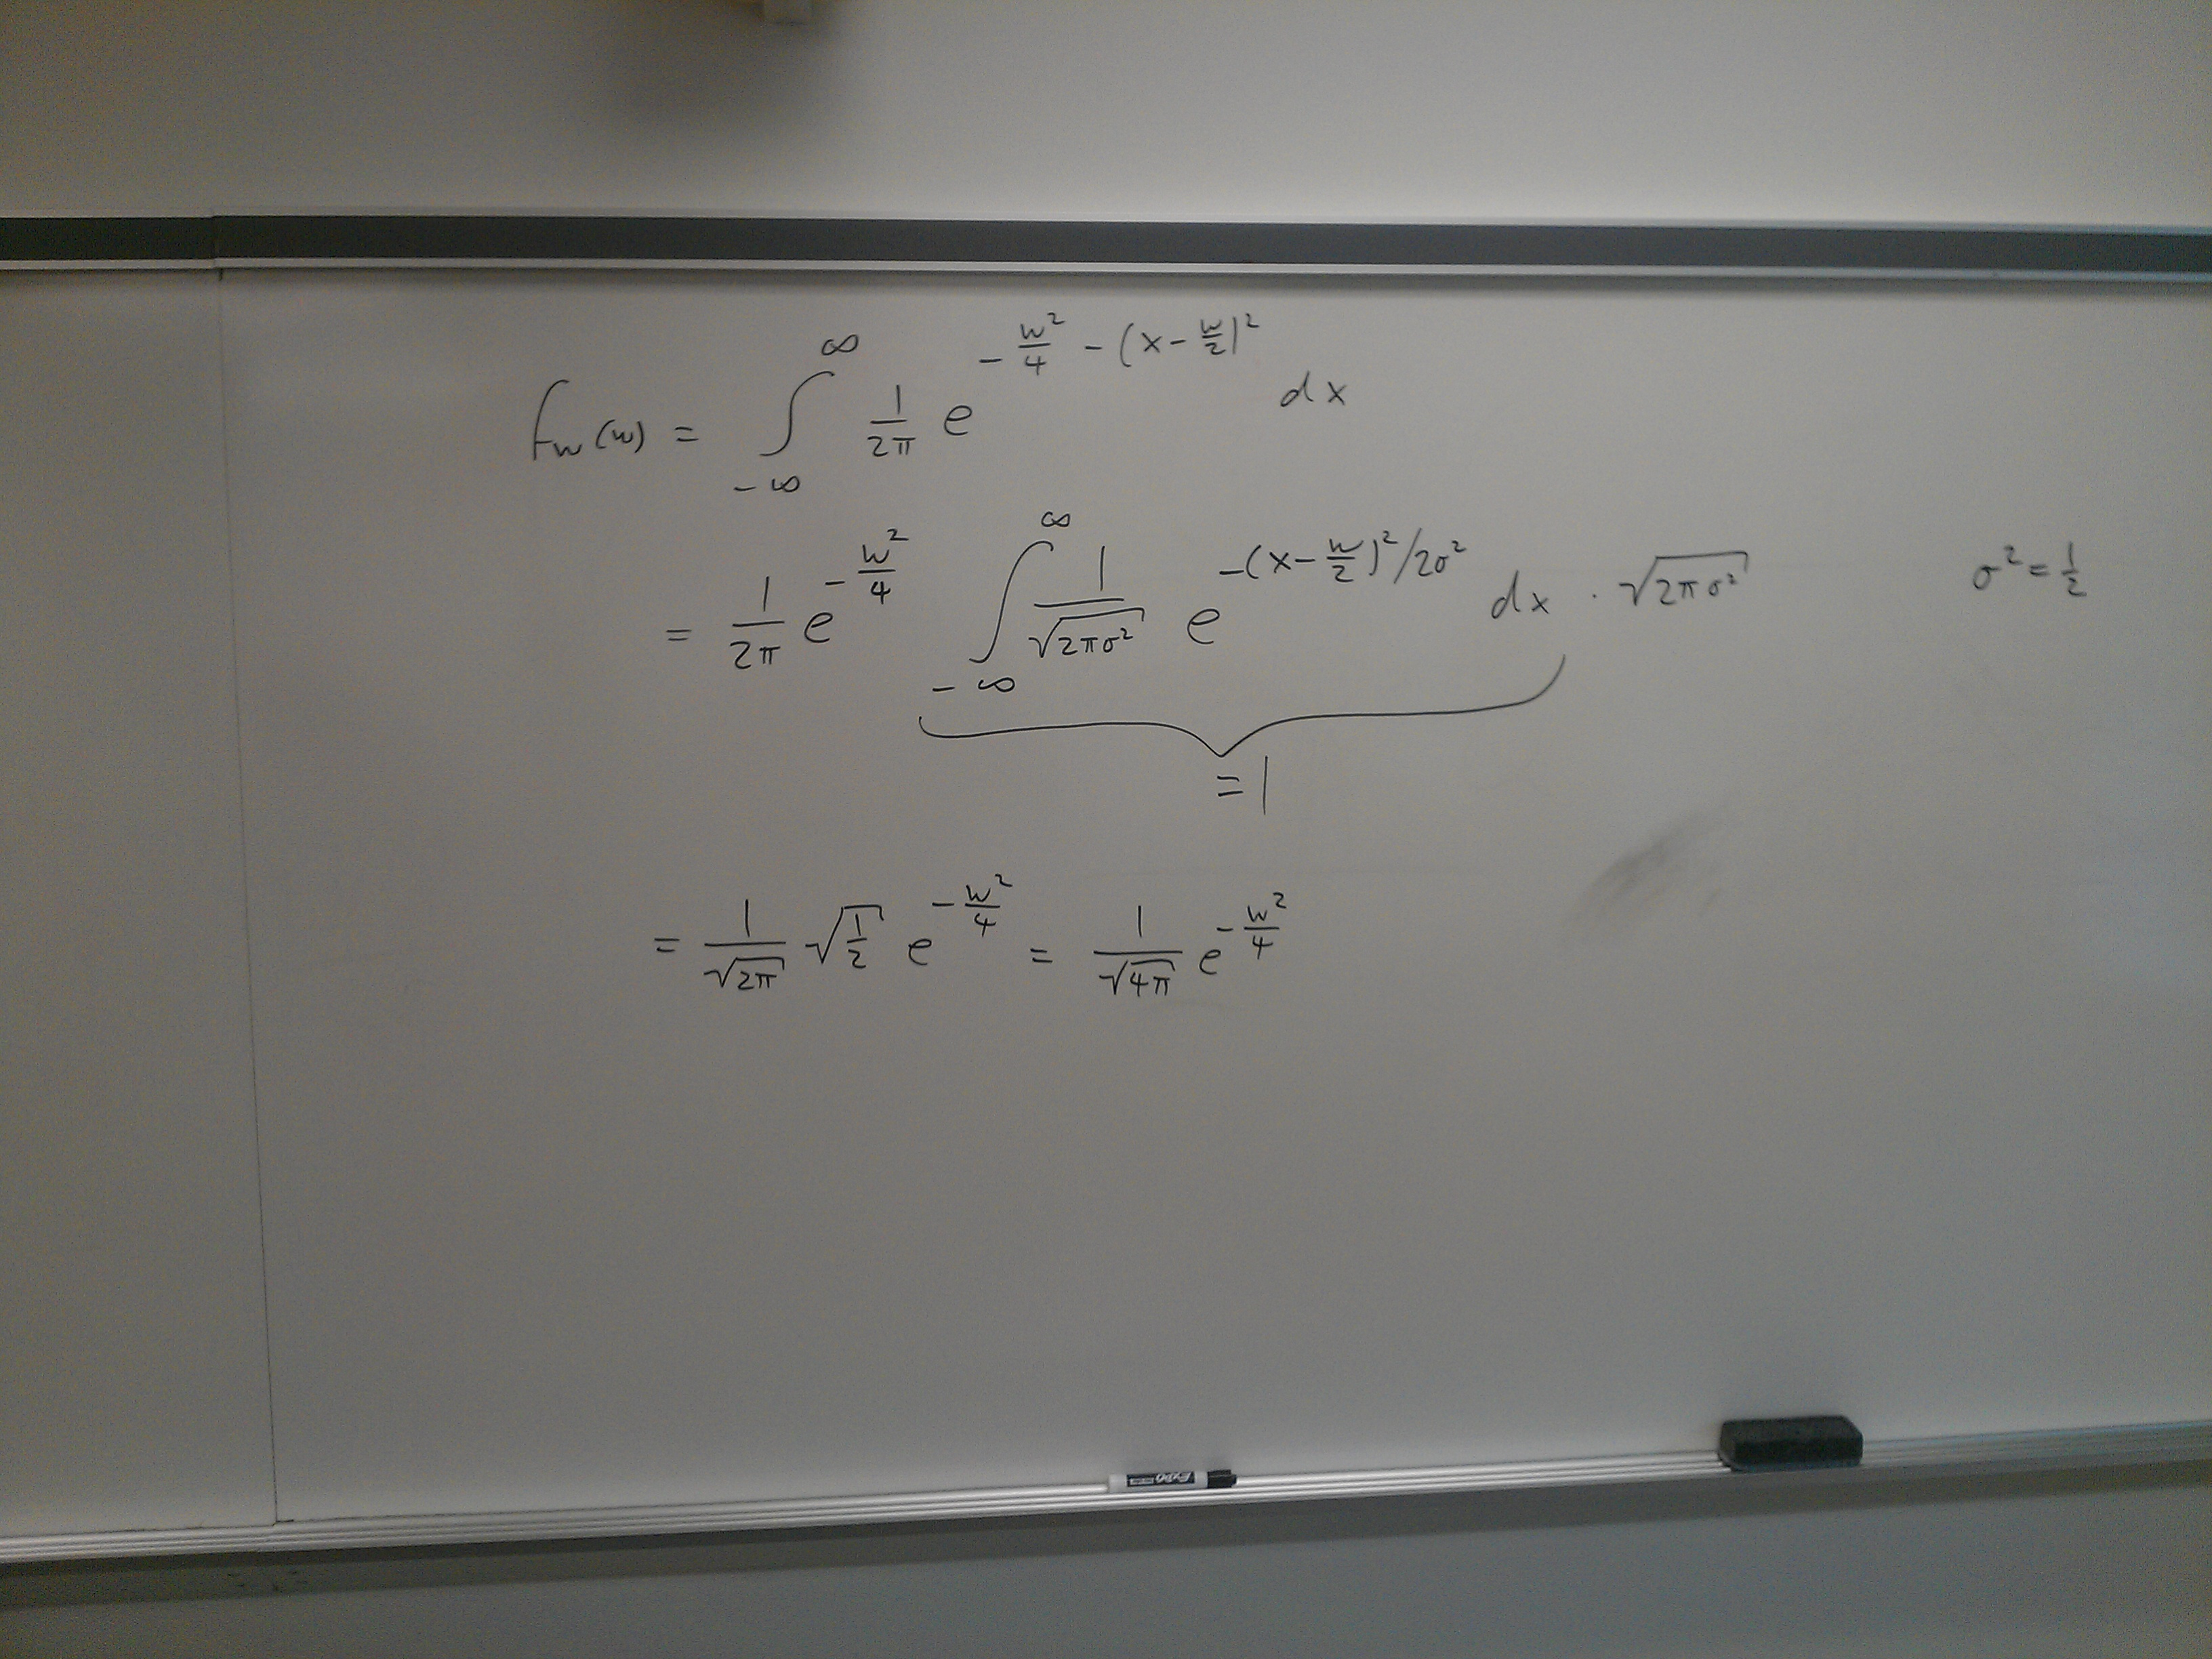 f_W(w) = ∫_{-∞}^{∞} 1/(2π) e^{-w²/4 - (x - w/2)²} dx
= 1/(2π) e^{-w²/4} ∫_{-∞}^{∞} 1/√(2πσ²) e^{-(x - w/2)²/2σ²} dx · √(2πσ²) σ² = 1/2
= 1
= 1/√(2π) √(1/2) e^{-w²/4} = 1/√(4π) e^{-w²/4}
Expo